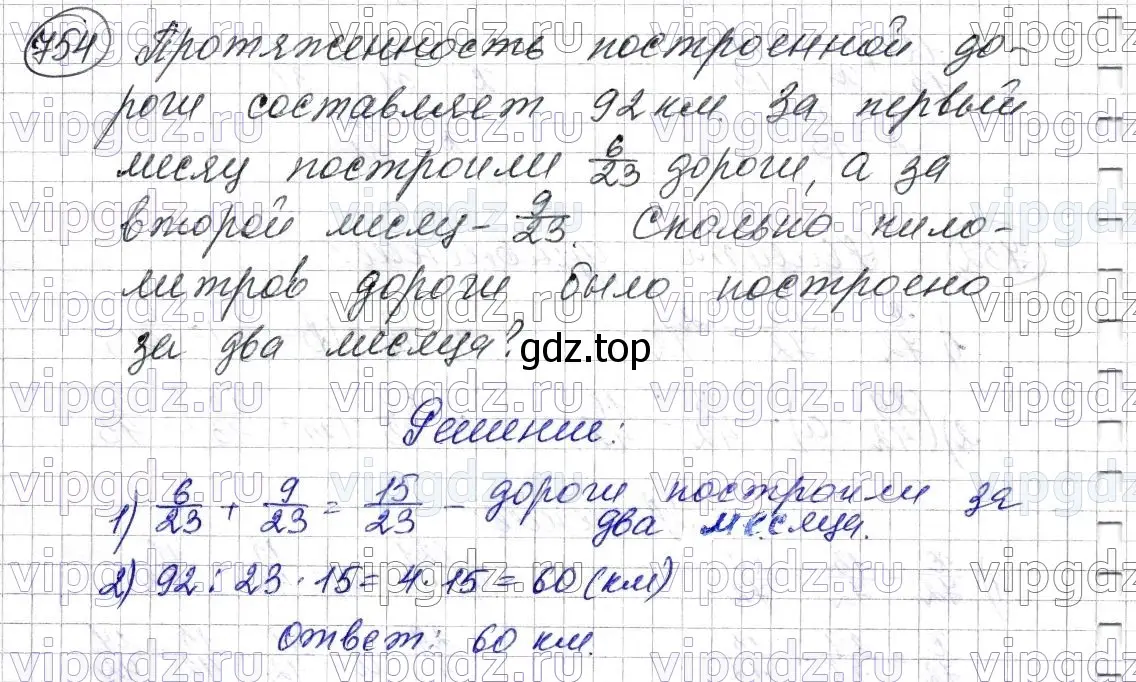 754 Протяженность построенной до-
роги составляет 92 км. За первый
месяц построили 6/23 дороги, а за
второй месяц - 9/23. Сколько кило-
метров дороги было построено
за два месяца?
gdz.top
Решение:
1) 6/23 + 9/23 = 15/23 - дороги построили за
два месяца.
2) 92 : 23 · 15 = 4 · 15 = 60 (км)
Ответ: 60 км.